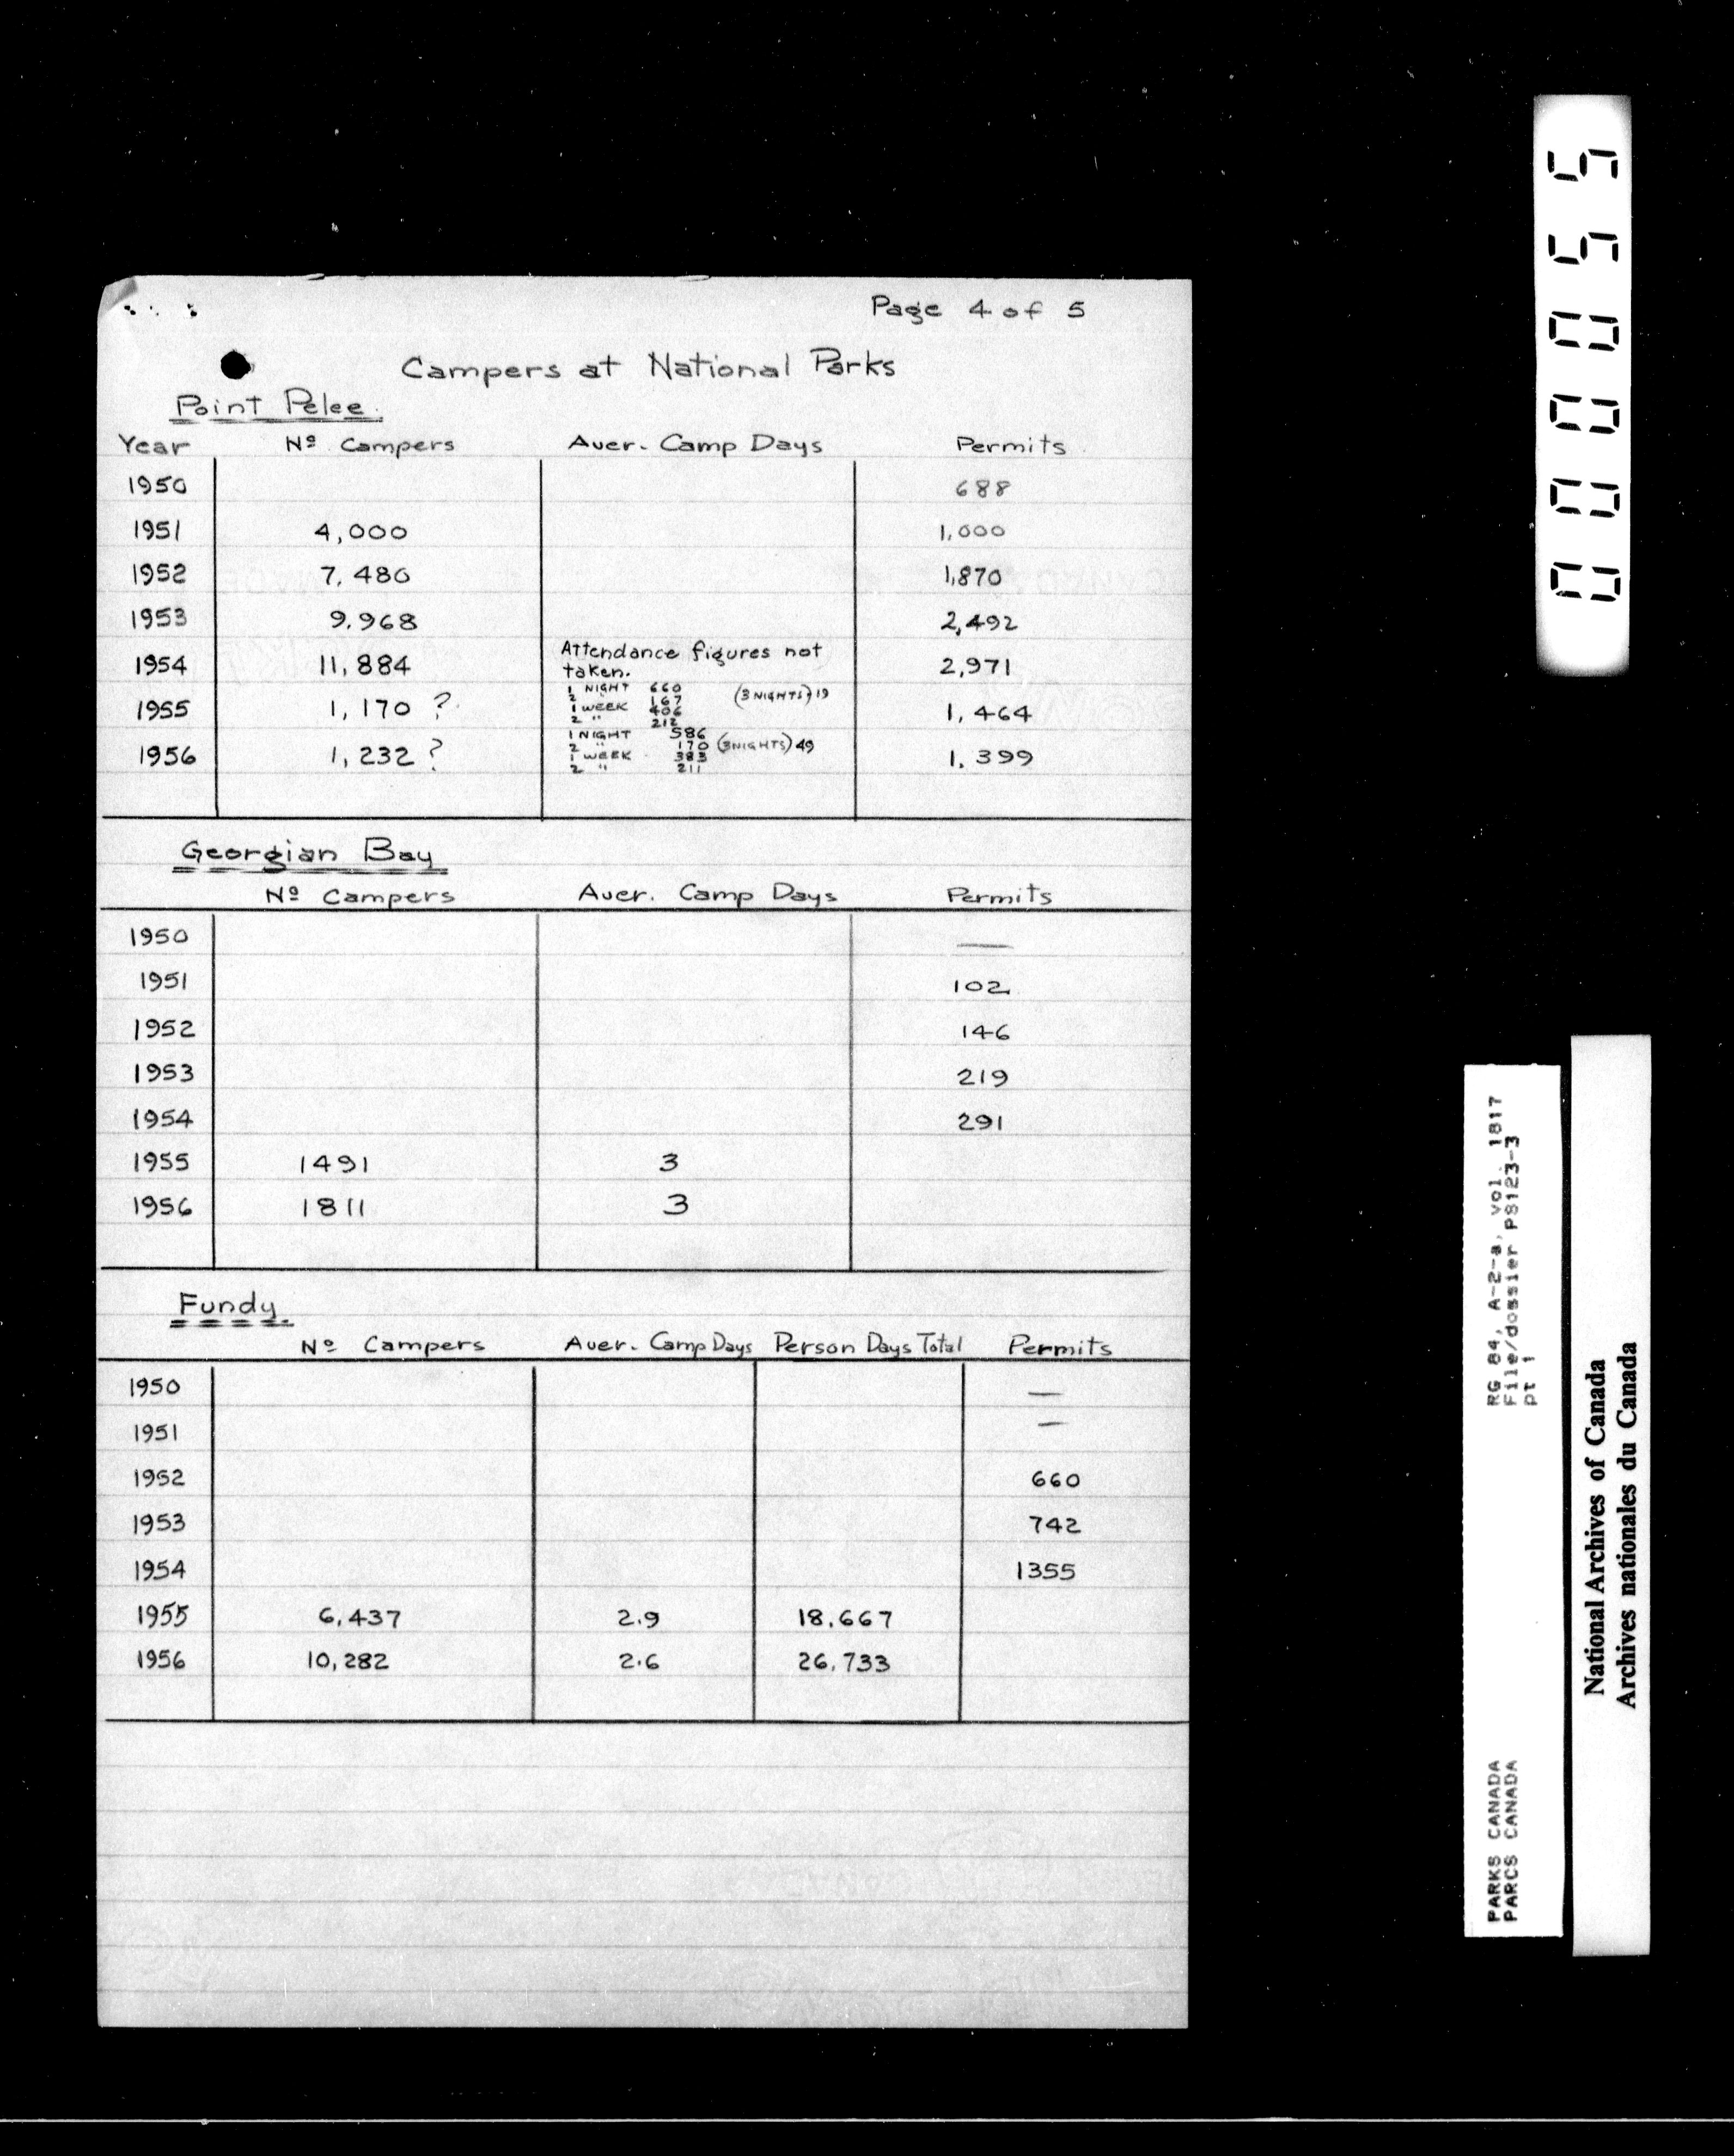 Page 4 of 5
Campers at National Parks
Point Pelee.
Year Nº Campers Aver. Camp Days Permits
1950 688
1951 4,000 1,000
1952 7,480 1,870
1953 9,968 2,492
1954 11,884 Attendance figures not taken. 2,971
1955 1,170 ? 1,464
1 NIGHT 660
2 " 167 (3 NIGHTS) 19
1 WEEK 406
2 " 212
1956 1,232 ? 1,399
1 NIGHT 586
2 " 170 (3 NIGHTS) 49
1 WEEK 383
2 " 211
Georgian Bay
Nº Campers Aver. Camp Days Permits
1950 —
1951 102
1952 146
1953 219
1954 291
1955 1491 3
1956 1811 3
Fundy
Nº Campers Aver. Camp Days Person Days Total Permits
1950 —
1951 —
1952 660
1953 742
1954 1355
1955 6,437 2.9 18,667
1956 10,282 2.6 26,733
000055
RG 84, A-2-a, vol. 1817
File/dossier PS123-3
pt 1
PARKS CANADA
PARCS CANADA
National Archives of Canada
Archives nationales du Canada